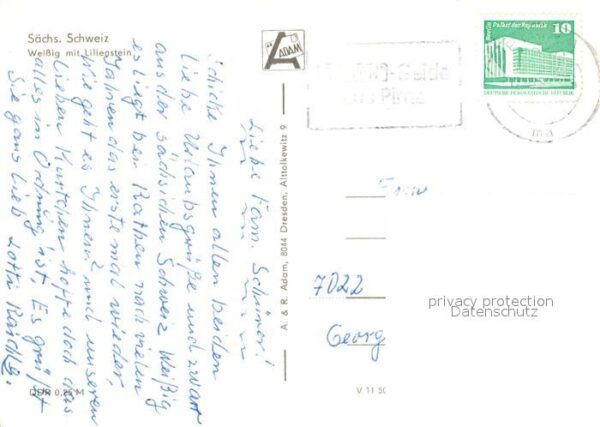 Sächs. Schweiz
Weißig mit Lilienstein
Liebe Fam. Schürer!
Ihnen allen beiden
liebe Urlaubsgrüße und zwar
aus der sächsischen Schweiz Weißig
es liegt bei Rathen nach vielen
Jahren das erste mal wieder,
Wie geht es Ihnen? und unseren
lieben Kurtchen hoffe doch das
alles in Ordnung ist. Es grüßt
Sie ganz lieb Lotti
DDR 0,25 M
ADAM
A. & R. Adam, 8044 Dresden, Alttolkewitz 9
-Seide
aus Pirna
Berlin Palast der Republik
10
DEUTSCHE DEMOKRATISCHE REPUBLIK
7022
Georg
V 11 50
privacy protection
Datenschutz